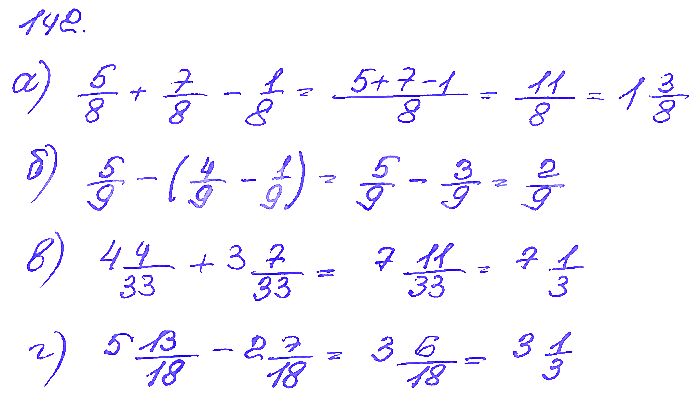 142.
а) 5/8 + 7/8 - 1/8 = (5+7-1)/8 = 11/8 = 1 3/8
б) 5/9 - (4/9 - 1/9) = 5/9 - 3/9 = 2/9
в) 4 4/33 + 3 7/33 = 7 11/33 = 7 1/3
г) 5 13/18 - 2 7/18 = 3 6/18 = 3 1/3